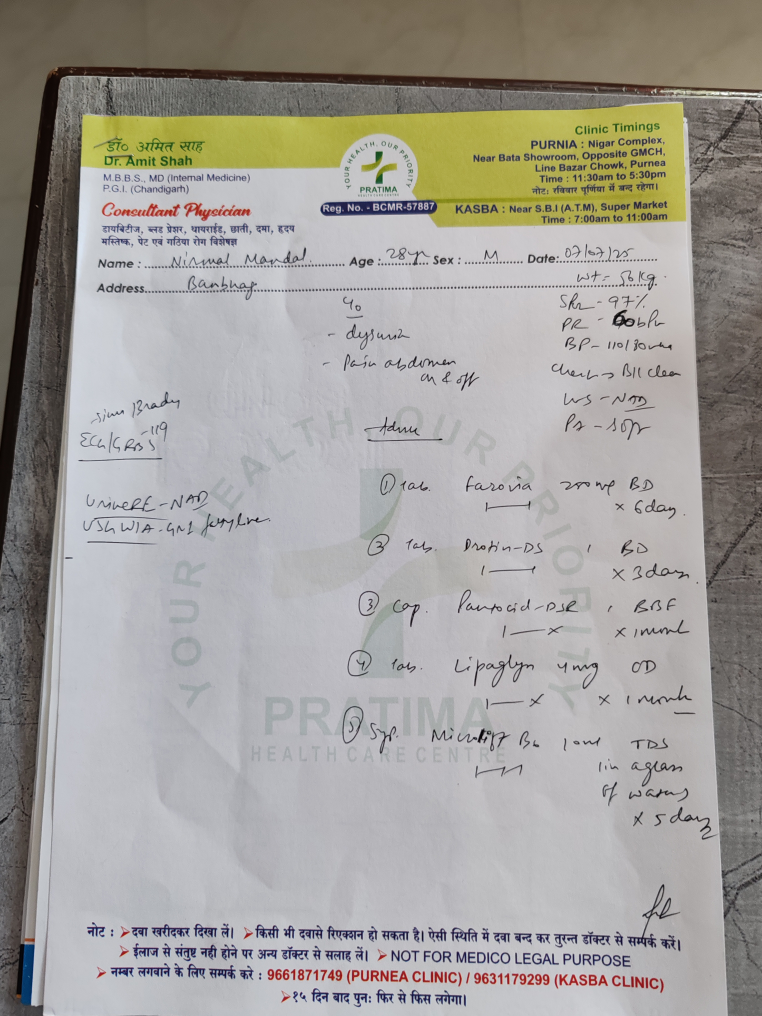 डॉ० अमित साह
Dr. Amit Shah
M.B.B.S., MD (Internal Medicine)
P.G.I. (Chandigarh)
Consultant Physician
डायबिटीज, ब्लड प्रेशर, थायराईड, छाती, दमा, हृदय
मस्तिष्क, पेट एवं गठिया रोग विशेषज्ञ
YOUR HEALTH, OUR PRIORITY
PRATIMA
HEALTH CARE CENTRE
Reg. No. - BCMR-57887
Clinic Timings
PURNIA : Nigar Complex,
Near Bata Showroom, Opposite GMCH,
Line Bazar Chowk, Purnea
Time : 11:30am to 5:30pm
नोट: रविवार पूर्णिया में बन्द रहेगा।
KASBA : Near S.B.I (A.T.M), Super Market
Time : 7:00am to 11:00am
Name : Nirmal Mandal. Age : 28yr Sex : M Date: 07/07/25
Address
Wt = 56 kg.
97%
PR - 60 bpm
BP - 110/80
Chest → B/L clear
NAD
c/o
- dysuria
- Pain abdomen
on & off
Brady
ECG/GRBS - 119
Urine RE - NAD
USG W/A
Advice
① Tab. Farovia 200mg BD
x 6 day.
② Tab. -DS 1 BD
x 3 days.
③ Cap. Pantocid-DSR 1 BBF
x 1 month
④ Tab. Lipaglyn 4mg OD
x 1 month
⑤ Syp. B6 10ml TDS
in a glass
of water
x 5 day
YOUR HEALTH OUR PRIORITY
PRATIMA
HEALTH CARE CENTRE
नोट : ➤दवा खरीदकर दिखा लें। ➤किसी भी दवासे रिएक्शन हो सकता है। ऐसी स्थिति में दवा बन्द कर तुरन्त डॉक्टर से सम्पर्क करें।
➤ईलाज से संतुष्ट नही होने पर अन्य डॉक्टर से सलाह लें। ➤NOT FOR MEDICO LEGAL PURPOSE
➤नम्बर लगवाने के लिए सम्पर्क करे : 9661871749 (PURNEA CLINIC) / 9631179299 (KASBA CLINIC)
➤१५ दिन बाद पुनः फिर से फिस लगेगा।